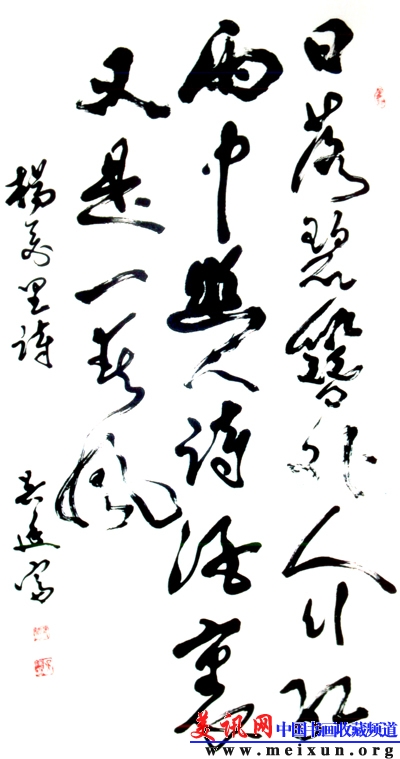 日落碧簪外人行红
雨中幽人诗酒裏
又是一春风
楊萬里诗
美讯网 中国书画收藏频道
www.meixun.org